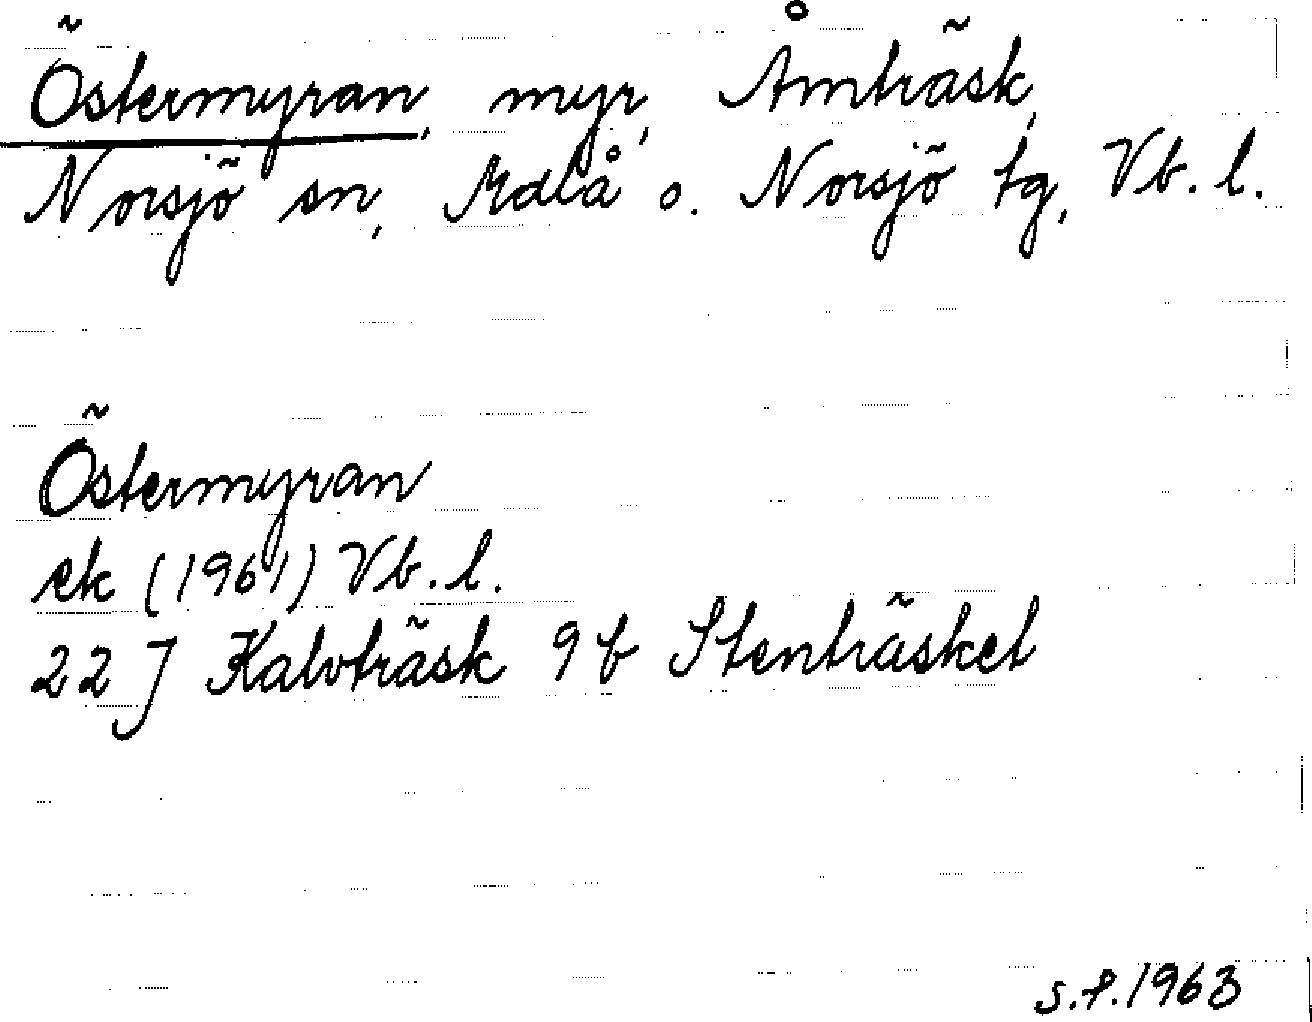 Östermyran, myr, Åmträsk,
Norsjö sn, Mdlå o. Norsjö tg, Vb. l.
Östermyran
ek (1961) Vb. l.
22 J Kalvträsk 9 b Stenträsket
s.f. 1963